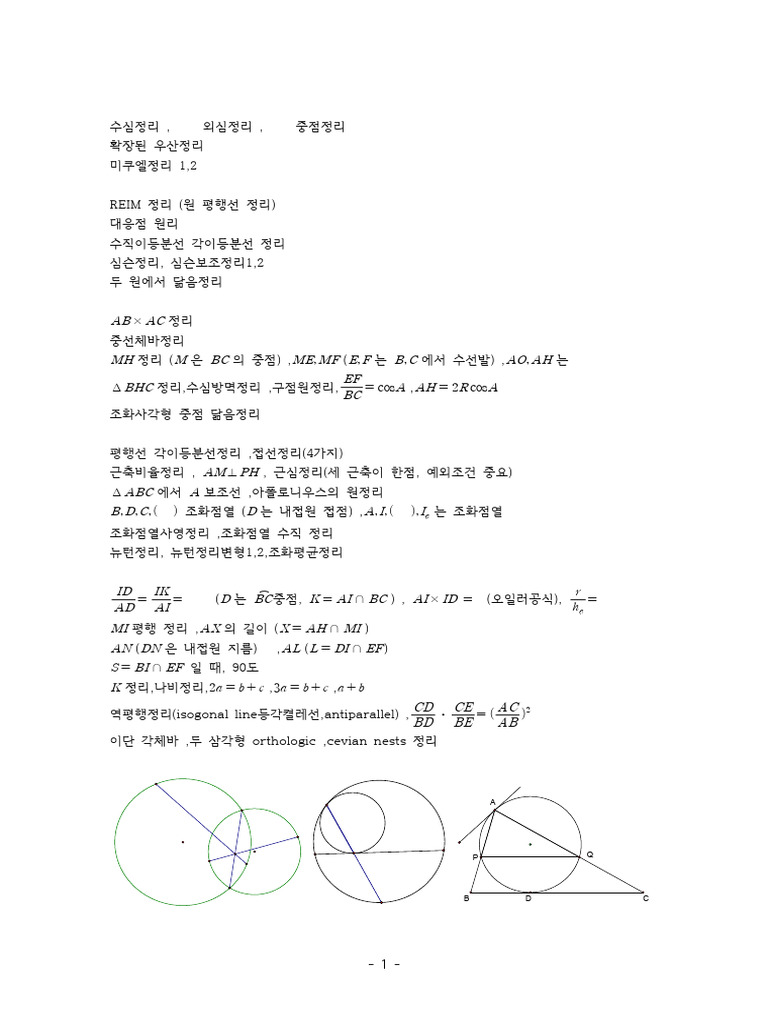 수심정리 , 외심정리 , 중점정리
확장된 우산정리
미쿠엘정리 1,2
REIM 정리 (원 평행선 정리)
대응점 원리
수직이등분선 각이등분선 정리
심슨정리, 심슨보조정리1,2
두 원에서 닮음정리
AB × AC 정리
중선체바정리
MH 정리 (M 은 BC 의 중점) ,ME,MF (E,F 는 B,C 에서 수선발) ,AO,AH 는
△BHC 정리,수심방멱정리 ,구점원정리, EF/BC = cosA ,AH = 2RcosA
조화사각형 중점 닮음정리
평행선 각이등분선정리 ,접선정리(4가지)
근축비율정리 , AM⊥PH , 근심정리(세 근축이 한점, 예외조건 중요)
△ABC 에서 A 보조선 ,아폴로니우스의 원정리
B,D,C,( ) 조화점열 (D 는 내접원 접점) ,A,I,( ),Ie 는 조화점열
조화점열사영정리 ,조화점열 수직 정리
뉴턴정리, 뉴턴정리변형1,2,조화평균정리
ID/AD = IK/AI = (D 는 B͡C중점, K = AI ∩ BC ) , AI × ID = (오일러공식), r/he =
MI 평행 정리 ,AX 의 길이 (X = AH ∩ MI )
AN (DN 은 내접원 지름) ,AL (L = DI ∩ EF)
S = BI ∩ EF 일 때, 90도
K 정리,나비정리,2a = b + c ,3a = b + c ,a + b
역평행정리(isogonal line등각켤레선,antiparallel) , CD/BD · CE/BE = (AC/AB)²
이단 각체바 ,두 삼각형 orthologic ,cevian nests 정리
A
P
Q
B
D
C
- 1 -